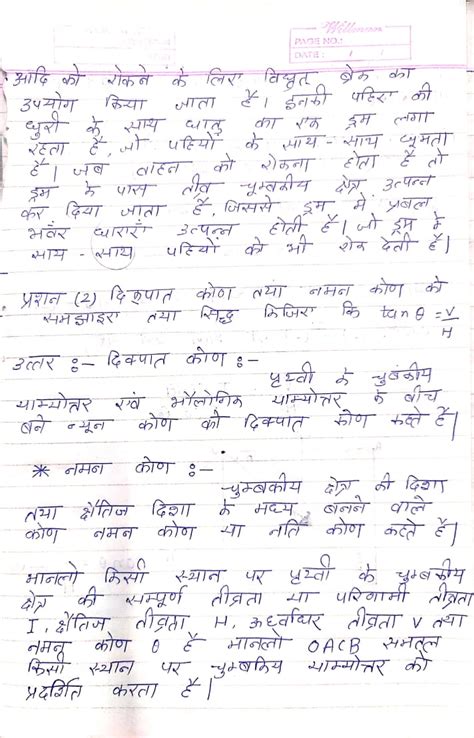 Willmann
PAGE NO.:
DATE: / /
आदि को रोकने के लिए विद्युत ब्रेक का
उपयोग किया जाता है। इनकी पहिए की
धुरी के साथ धातु का एक ड्रम लगा
रहता है, जो पहियों के साथ-साथ घूमता
है। जब वाहन को रोकना होता है तो
ड्रम के पास तीव्र चुम्बकीय क्षेत्र उत्पन्न
कर दिया जाता है, जिससे ड्रम में प्रबल
भवंर धाराएं उत्पन्न होती है। जो ड्रम के
साथ-साथ पहियों को भी रोक देती है।
प्रशन (2) दिक्पात कोण तथा नमन कोण को
समझाइए तथा सिद्ध किजिए कि tan θ = V/H
उत्तर :- दिक्पात कोण :-
पृथ्वी के चुबकीय
याम्योत्तर एवं भौलोगिक याम्योत्तर के बीच
बने न्यून कोण को दिक्पात कोण कहते है।
* नमन कोण :-
चुम्बकीय क्षेत्र की दिशा
तथा क्षैतिज दिशा के मध्य बनने वाले
कोण नमन कोण या नति कोण कहते है।
मानलो किसी स्थान पर पृथ्वी के चुम्बकीय
क्षेत्र की सम्पूर्ण तीव्रता या परिणामी तीव्रता
I, क्षैतिज तीव्रता H, ऊर्ध्वाधर तीव्रता V तथा
नमन कोण θ है मानलो OACB समतल
किसी स्थान पर चुम्बकिय याम्योत्तर को
प्रदर्शित करता है।